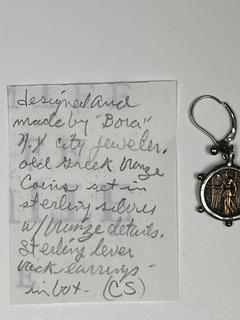 designed and
made by "Bora"
N.Y city jeweler.
old Greek bronze
Coins set in
sterling silver
w/ bronze details.
Sterling lever
back earrings -
in box - (CS)